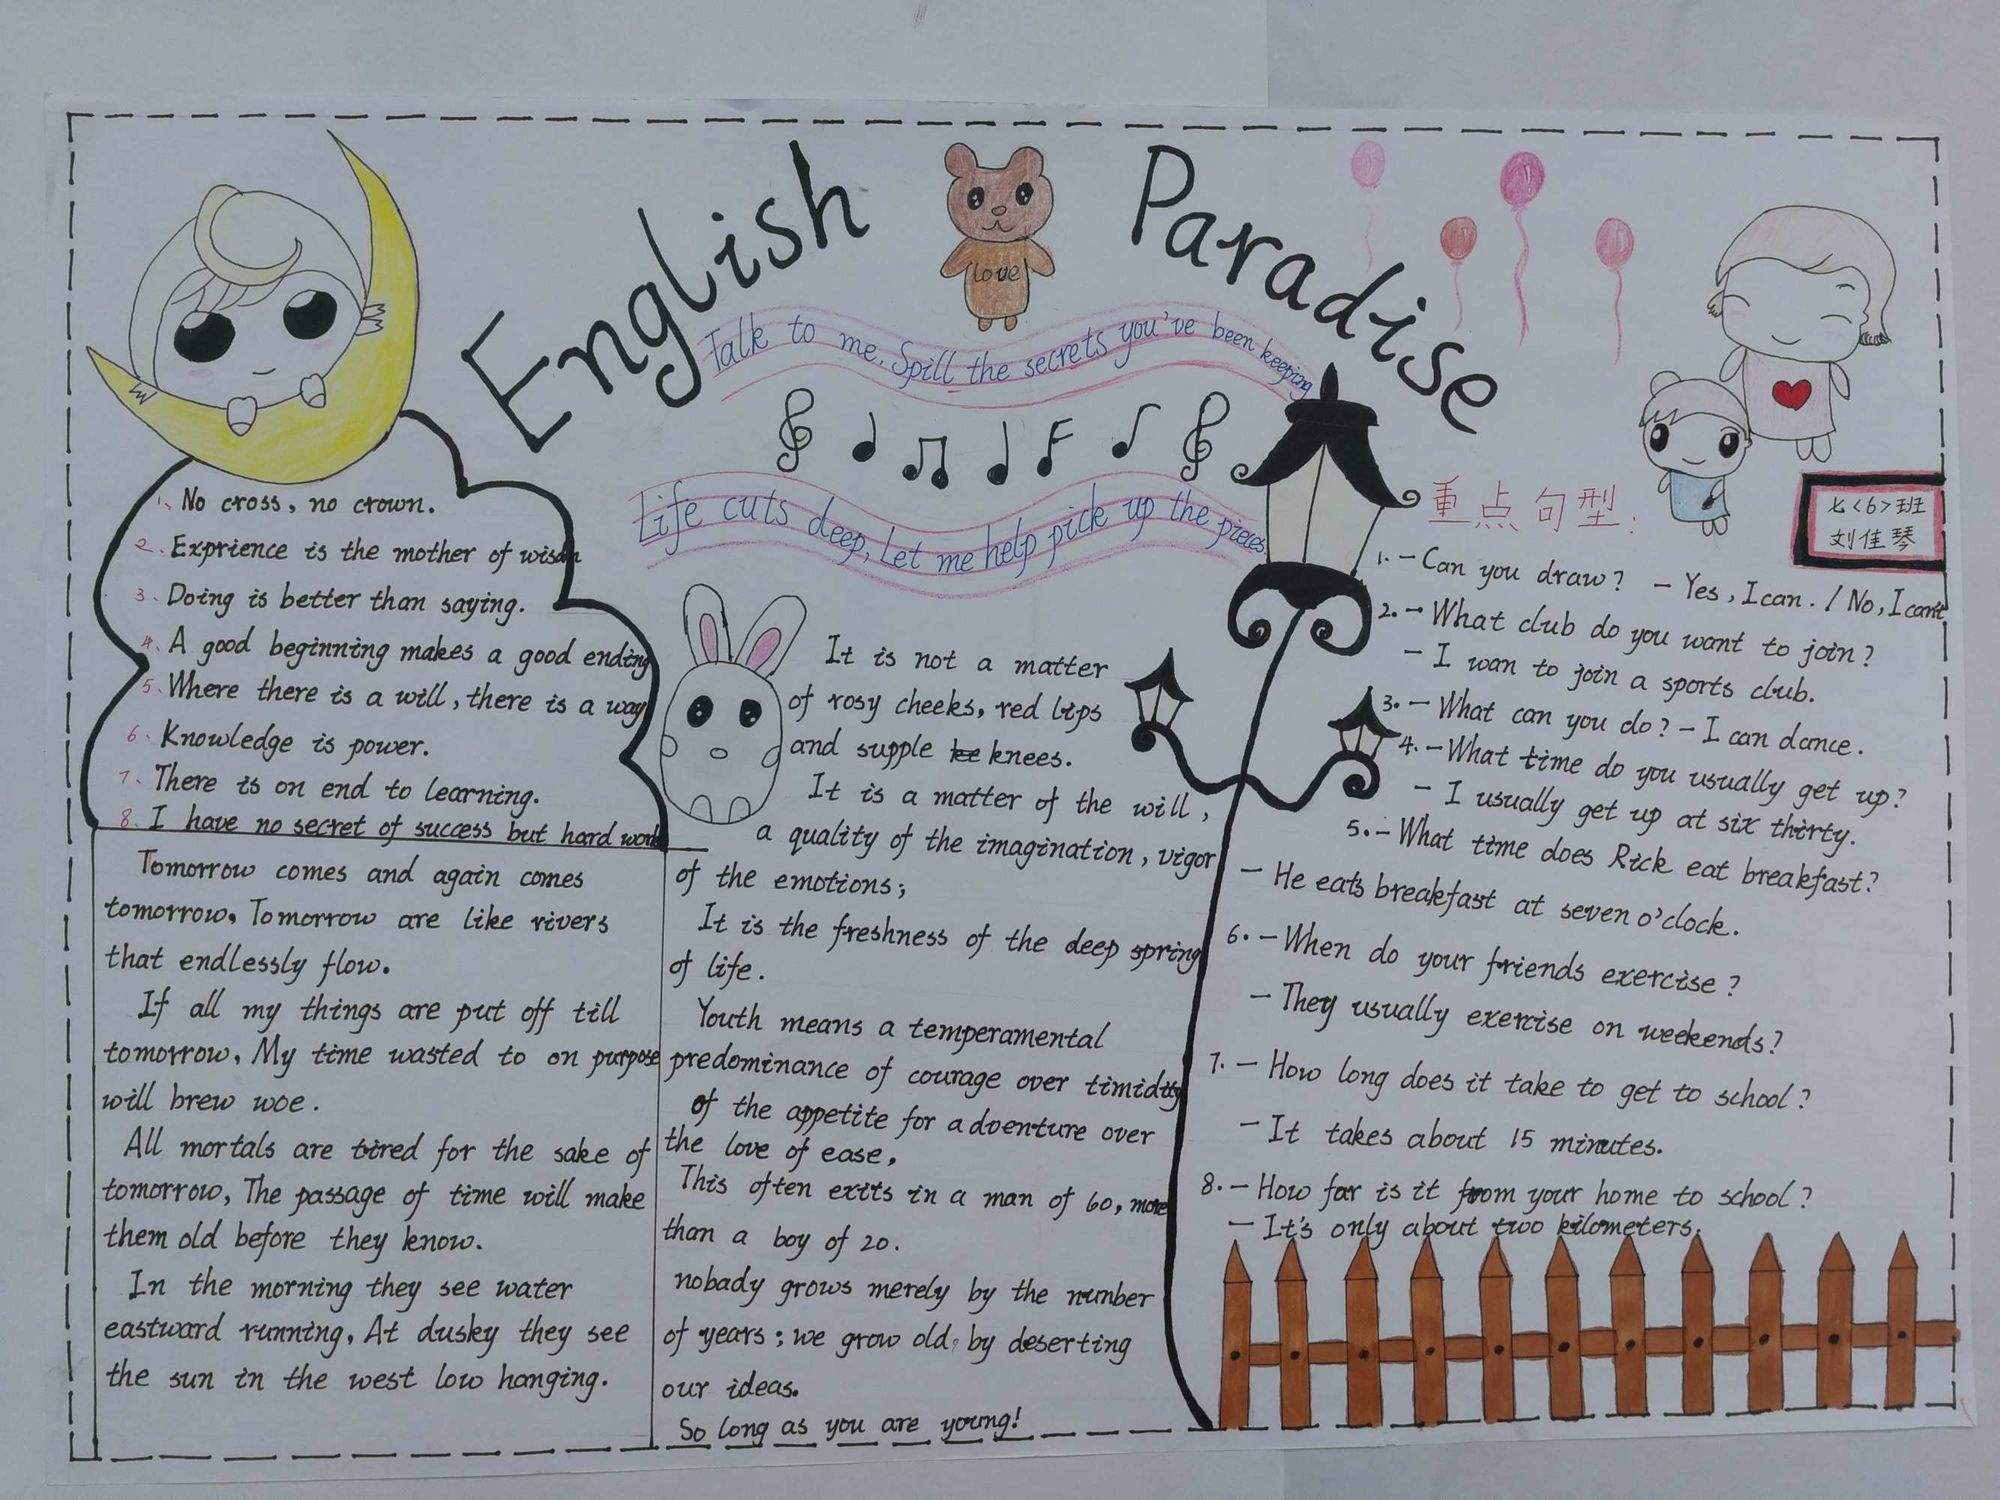 English Paradise
love
Talk to me, Spill the secrets you've been keeping
Life cuts deep, Let me help pick up the pieces
1、No cross, no crown.
2、Exprience is the mother of wisdm
3、Doing is better than saying.
4、A good beginning makes a good ending
5、Where there is a will, there is a way
6、Knowledge is power.
7、There is on end to learning.
8、I have no secret of success but hard work
Tomorrow comes and again comes
tomorrow, Tomorrow are like rivers
that endlessly flow.
If all my things are put off till
tomorrow, My time wasted to on purpose
will brew woe.
All mortals are tired for the sake of
tomorrow, The passage of time will make
them old before they know.
In the morning they see water
eastward running, At dusky they see
the sun in the west low hanging.
It is not a matter
of rosy cheeks, red lips
and supple knees.
It is a matter of the will,
a quality of the imagination, vigor
of the emotions;
It is the freshness of the deep spring
of life.
Youth means a temperamental
predominance of courage over timidity
of the appetite for adventure over
the love of ease,
This often exits in a man of 60, more
than a boy of 20.
nobady grows merely by the number
of years; we grow old by deserting
our ideas.
So long as you are young!
七<6>班
刘佳琴
重点句型:
1. - Can you draw? - Yes, I can. / No, I can't
2. - What club do you want to join?
- I wan to join a sports club.
3. - What can you do? - I can dance.
4. - What time do you usually get up?
- I usually get up at six thirty.
5. - What time does Rick eat breakfast?
- He eats breakfast at seven o'clock.
6. - When do your friends exercise?
- They usually exercise on weekends?
7. - How long does it take to get to school?
- It takes about 15 minutes.
8. - How far is it from your home to school?
- It's only about two kilometers.